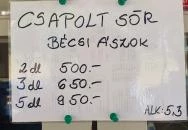 CSAPOLT SÖR
BÉCSI ÁSZOK
2 dl 500.-
3 dl 650.-
5 dl 950.-
ALK: 5,3